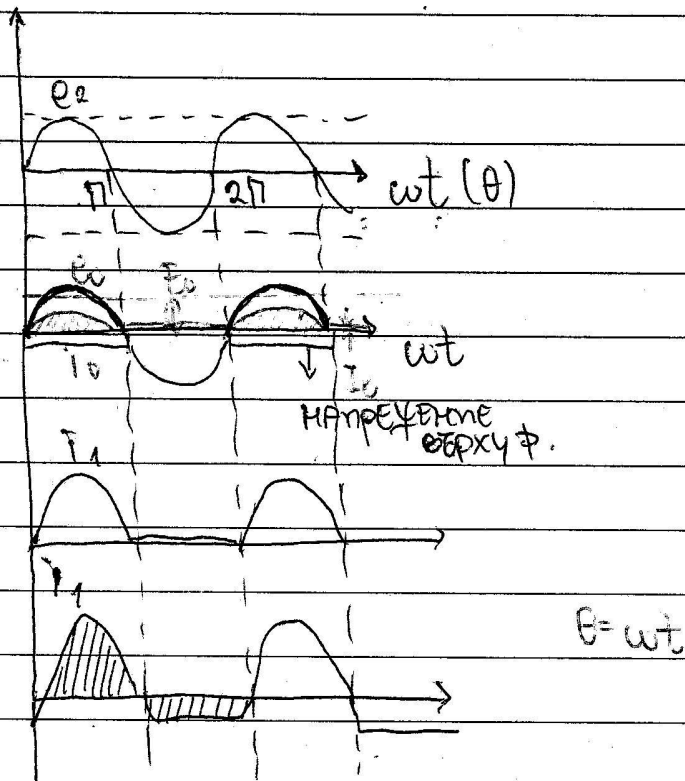 e2
π 2π ωt (θ)
e0 E0
i0 ωt
I0
НАПРЕЖЕНИЕ
ВЪРХУ Ф.
i1
i1
θ = ωt